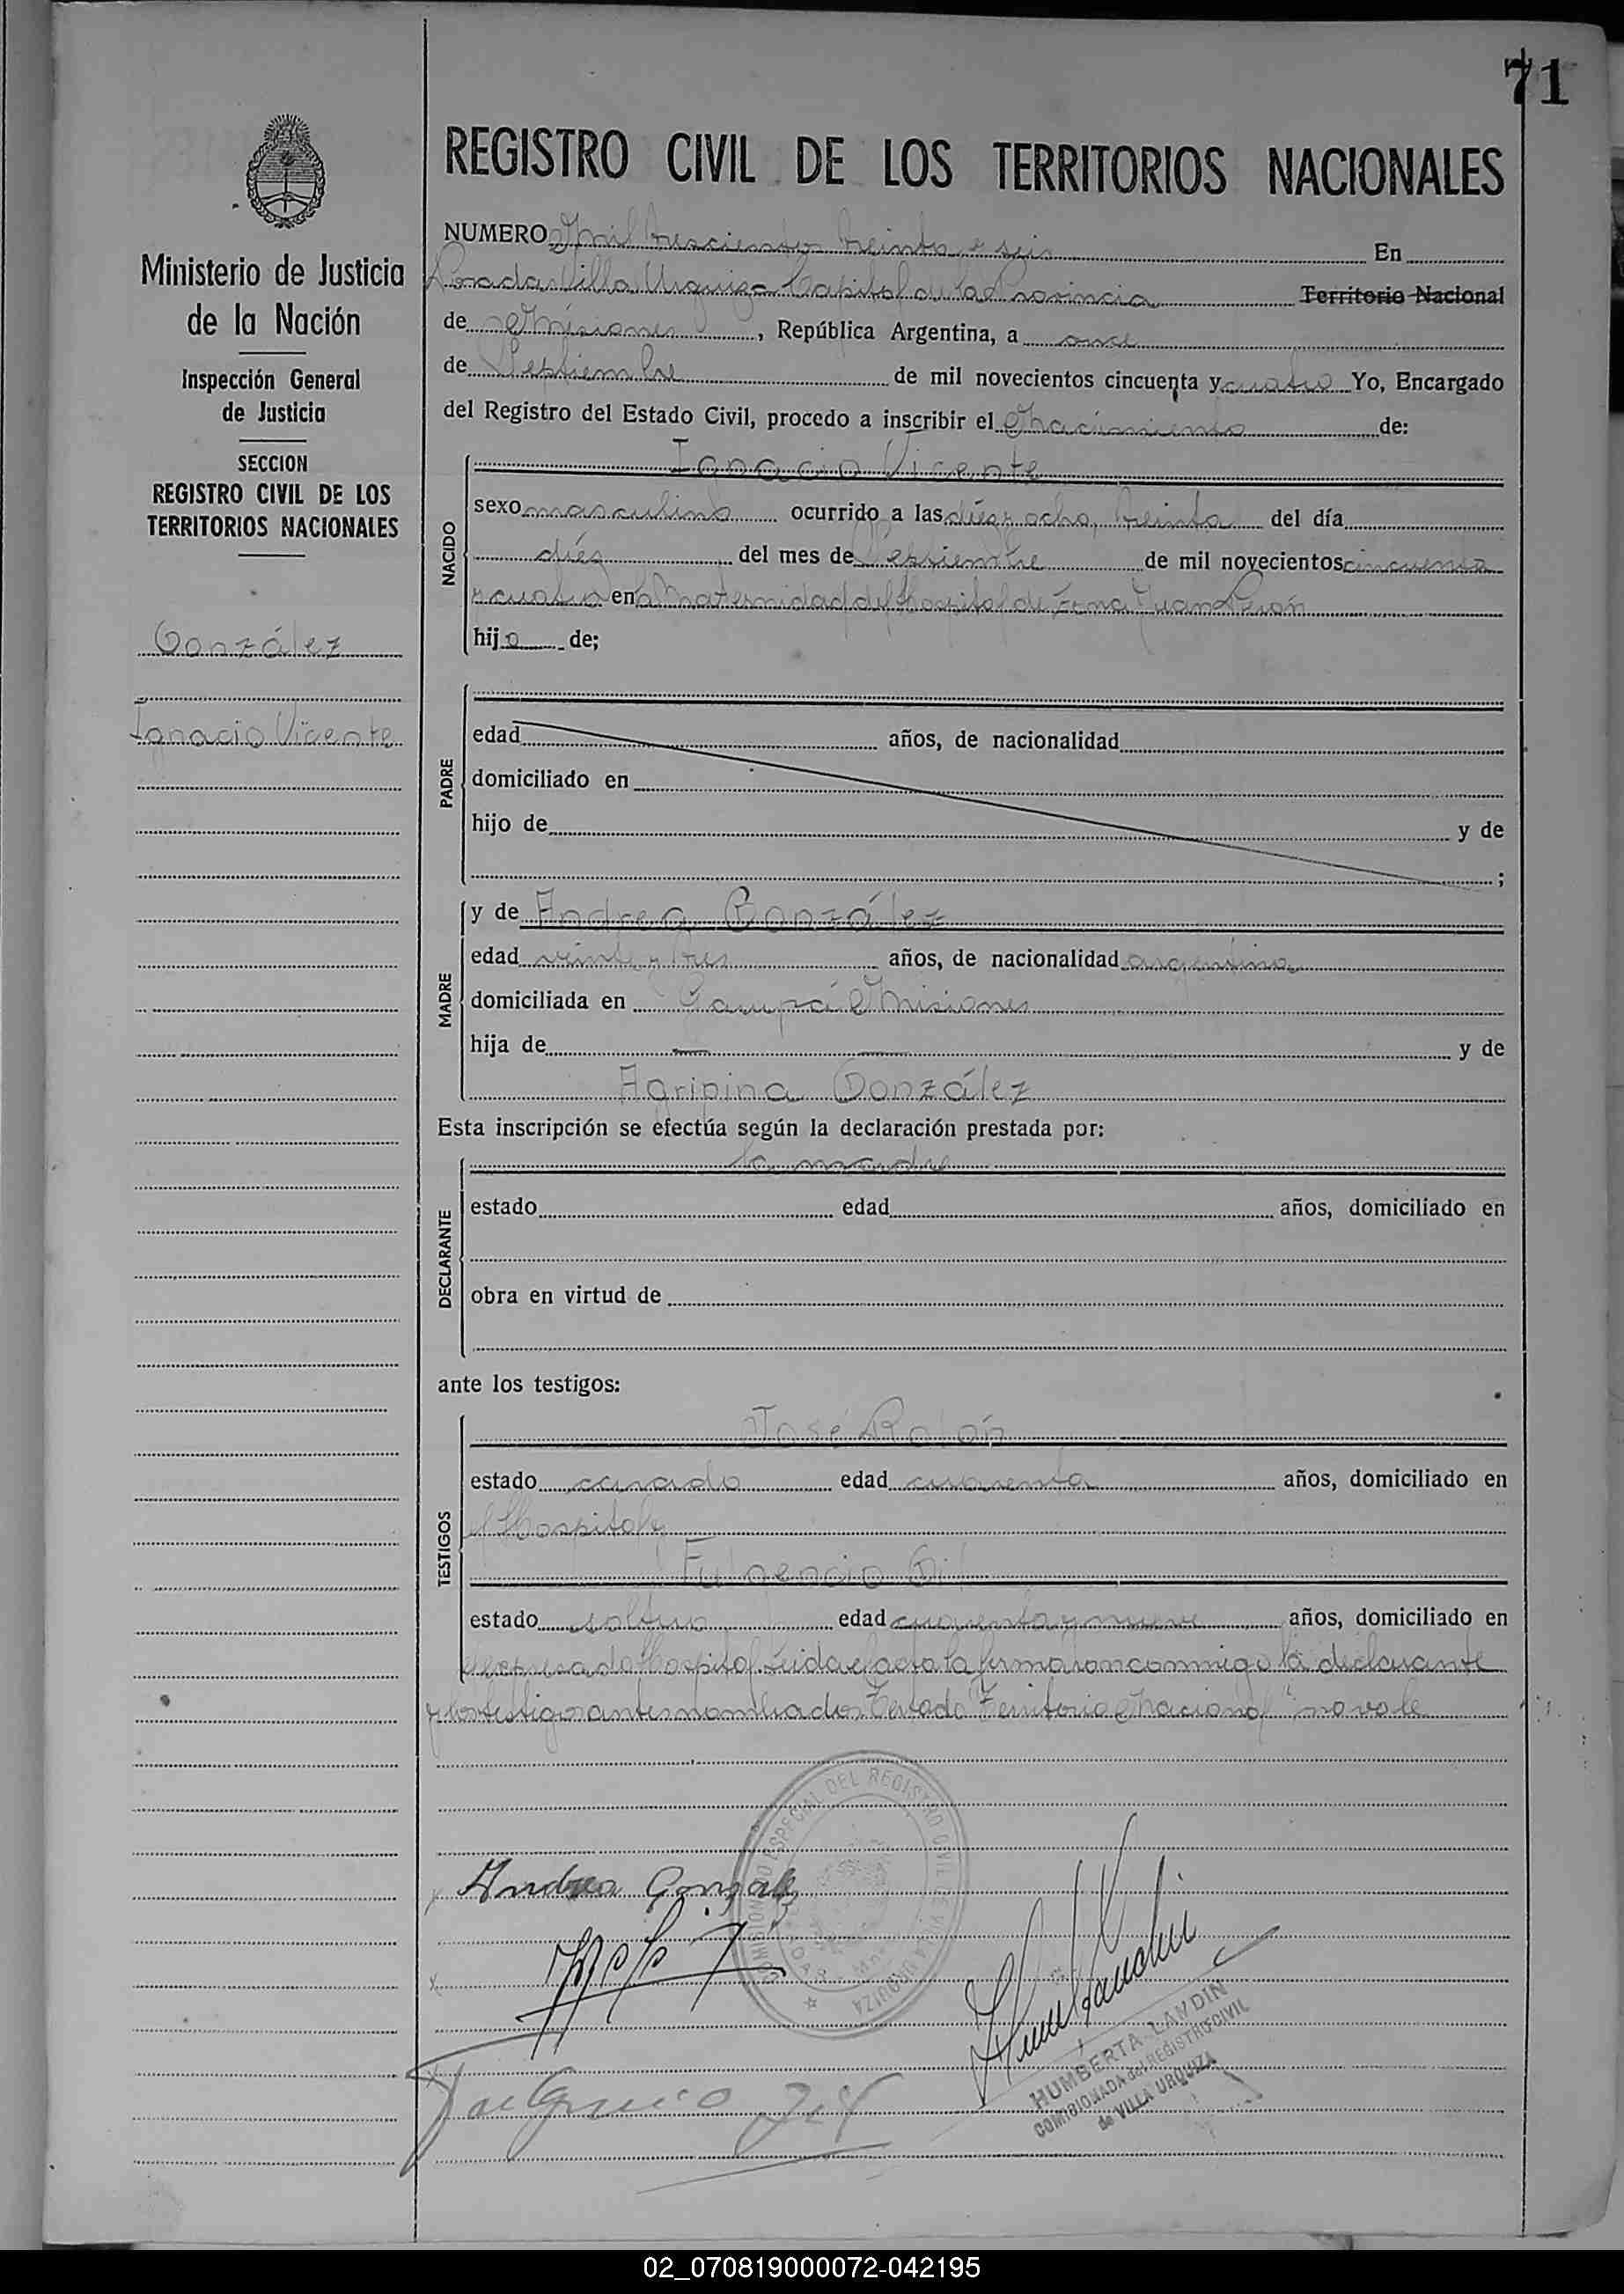 71
REGISTRO CIVIL DE LOS TERRITORIOS NACIONALES
Ministerio de Justicia
de la Nación
Inspección General
de Justicia
SECCION
REGISTRO CIVIL DE LOS
TERRITORIOS NACIONALES
González
Ignacio Vicente
NUMERO Mil trescientos treinta y seis En
Posadas Villa Urquiza Capital de la Provincia Territorio Nacional
de Misiones, República Argentina, a once
de Septiembre de mil novecientos cincuenta y cuatro Yo, Encargado
del Registro del Estado Civil, procedo a inscribir el Nacimiento de:
NACIDO
Ignacio Vicente
sexo masculino ocurrido a las diez y ocho, treinta del día
diés del mes de Septiembre de mil novecientos cincuenta
y cuatro en la Maternidad del Hospital de Zona Juan Perón
hijo de;
PADRE
edad años, de nacionalidad
domiciliado en
hijo de y de
;
MADRE
y de Andrea González
edad veinte y tres años, de nacionalidad argentina
domiciliada en Garupá Misiones
hija de — — y de
Agripina González
Esta inscripción se efectúa según la declaración prestada por:
DECLARANTE
la madre
estado edad años, domiciliado en
obra en virtud de
ante los testigos:
TESTIGOS
José Rolón
estado casado edad cuarenta años, domiciliado en
el Hospital y
Fulgencio Gil
estado soltero edad cuarenta y nueve años, domiciliado en
el expresado Hospital. Leida el acta la firmaron conmigo la declarante
y los testigos antes nombrados. Testado "Territorio Nacional" no vale
COMISIONADO ESPECIAL DEL REGISTRO CIVIL DE VILLA URQUIZA
Andrea Gonzalez
Fulgencio Gil
HUMBERTA LANDIN
COMISIONADA del REGISTRO CIVIL
de VILLA URQUIZA
02_070819000072-042195